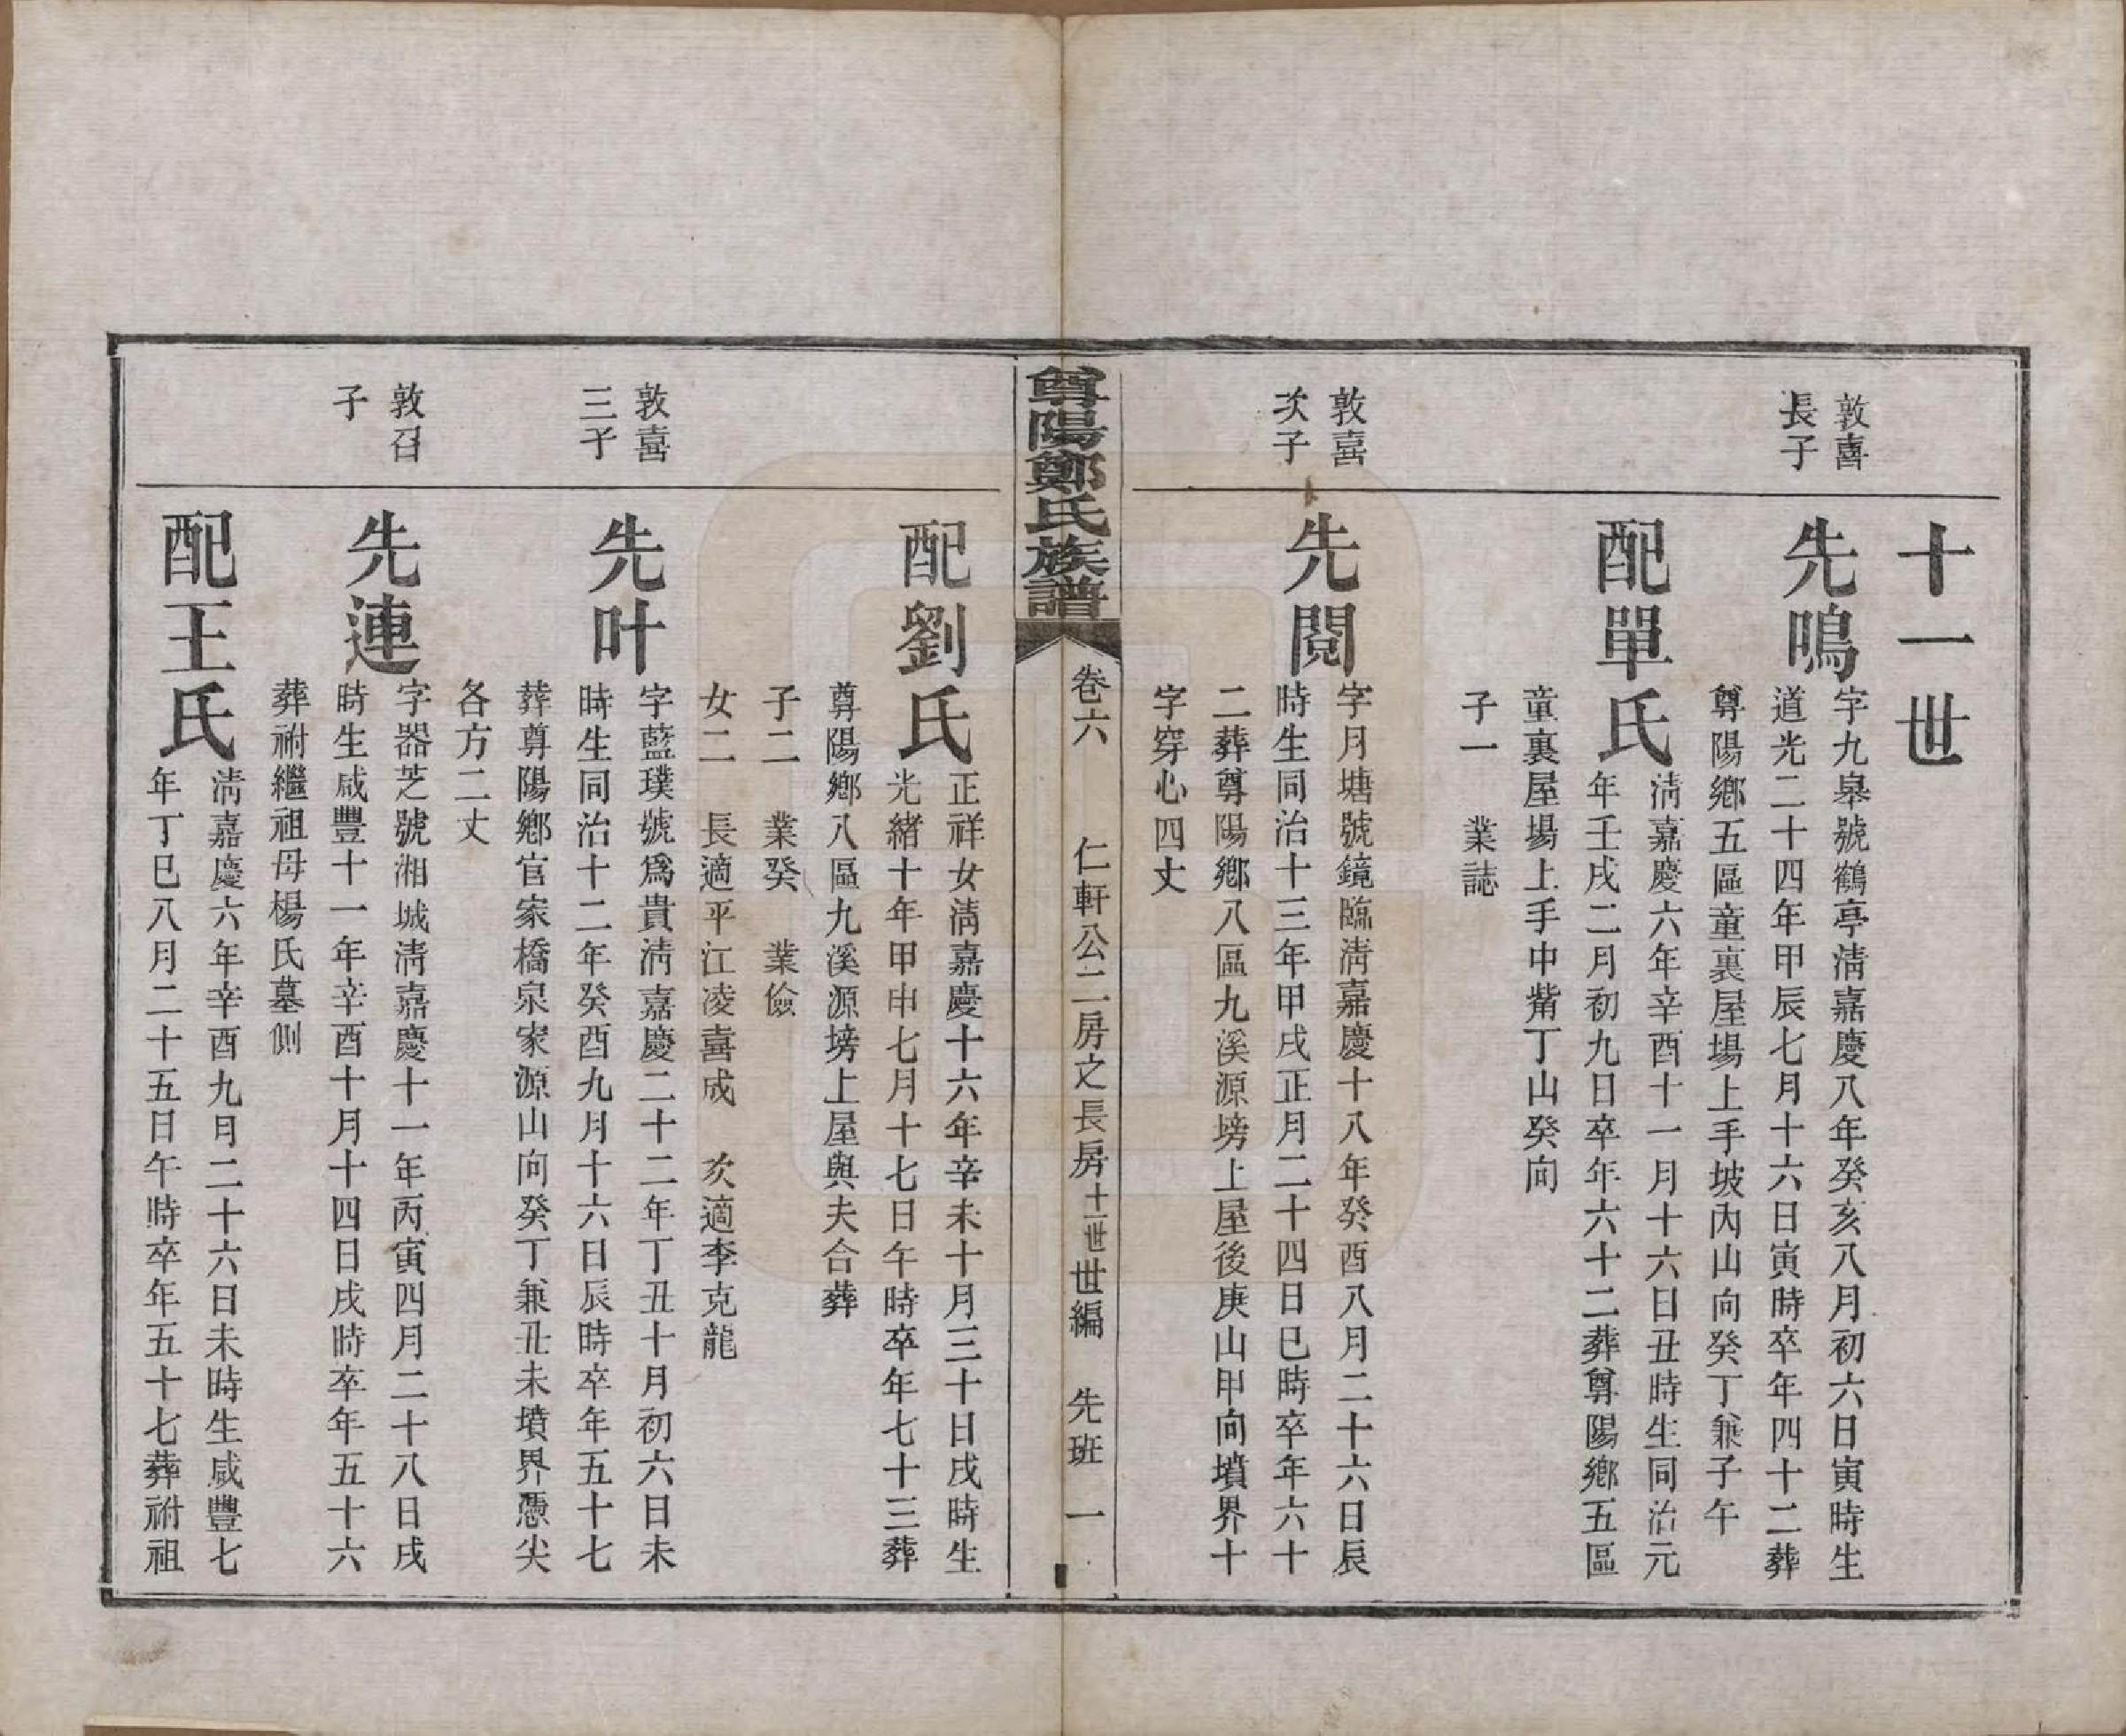 十一世
敦喜
長子
先鳴
字九皋號鶴亭淸嘉慶八年癸亥八月初六日寅時生
道光二十四年甲辰七月十六日寅時卒年四十二葬
尊陽鄉五區童裏屋場上手坡丙山向癸丁兼子午
配單氏
淸嘉慶六年辛酉十一月十六日丑時生同治元
年壬戌二月初九日卒年六十二葬尊陽鄉五區
童裏屋場上手中觜丁山癸向
子一　業誌
敦喜
次子
先閱
字月塘號鏡臨淸嘉慶十八年癸酉八月二十六日辰
時生同治十三年甲戌正月二十四日巳時卒年六十
二葬尊陽鄉八區九溪源塝上屋後庚山甲向墳界十
字穿心四丈
尊陽鄭氏族譜
卷六　仁軒公二房之長房十一世世編　先班　一
配劉氏
正祥女淸嘉慶十六年辛未十月三十日戌時生
光緒十年甲申七月十七日午時卒年七十三葬
尊陽鄉八區九溪源塝上屋與夫合葬
子二　業癸　業儉
女二　長適平江凌喜成　次適李克龍
敦喜
三子
先叶
字藍璞號爲貴淸嘉慶二十二年丁丑十月初六日未
時生同治十二年癸酉九月十六日辰時卒年五十七
葬尊陽鄉官家橋泉家源山向癸丁兼丑未墳界憑尖
各方二丈
敦召
子
先連
字器芝號湘城淸嘉慶十一年丙寅四月二十八日戌
時生咸豐十一年辛酉十月十四日戌時卒年五十六
葬祔繼祖母楊氏墓側
配王氏
淸嘉慶六年辛酉九月二十六日未時生咸豐七
年丁巳八月二十五日午時卒年五十七葬祔祖